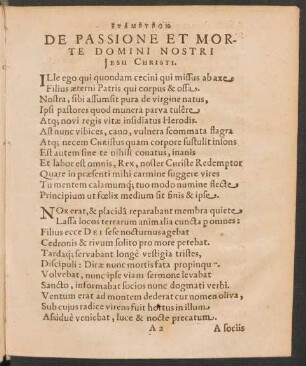 DE PASSIONE ET MOR-
TE DOMINI NOSTRI
JESU CHRISTI.
ILle ego qui quondam cecini qui missus ab axe
Filius æterni Patris qui corpus & ossa
Nostra, sibi assumsit pura de virgine natus,
Ipsi pastores quod munera parva tulêre
Atq; novi regis vitæ insidiatus Herodis.
Ast nunc vibices, cano, vulnera scommata flagra
Atq; necem CHRISTUS quam corpore sustulit insons
Est autem sine te nihili conatus, inanis
Et labor est omnis, Rex, noster Christe Redemptor
Quare in præsenti mihi carmine suggere vires
Tu mentem calamumq; tuo modo numine flecte
Principium ut fœlix medium sit finis & ipse
NOx erat, & placidâ reparabant membra quiete
Lassa locos terrarum animalia cuncta p omnes:
Filius ecce DEI sese nocturnus agebat
Cedronis & rivum solito pro more petebat.
Tardaq; servabant longè vestigia tristes,
Discipuli: Diræ nunc mortis fata propinquæ
Volvebat, nunc ipse viam sermone levabat
Sancto, informabat socios nunc dogmati verbi.
Ventum erat ad montem dederat cui nomen oliva,
Sub cujus radice virens fuit hortus in illum
Assiduè veniebat, luce & nocte precatum
A 2 A sociis